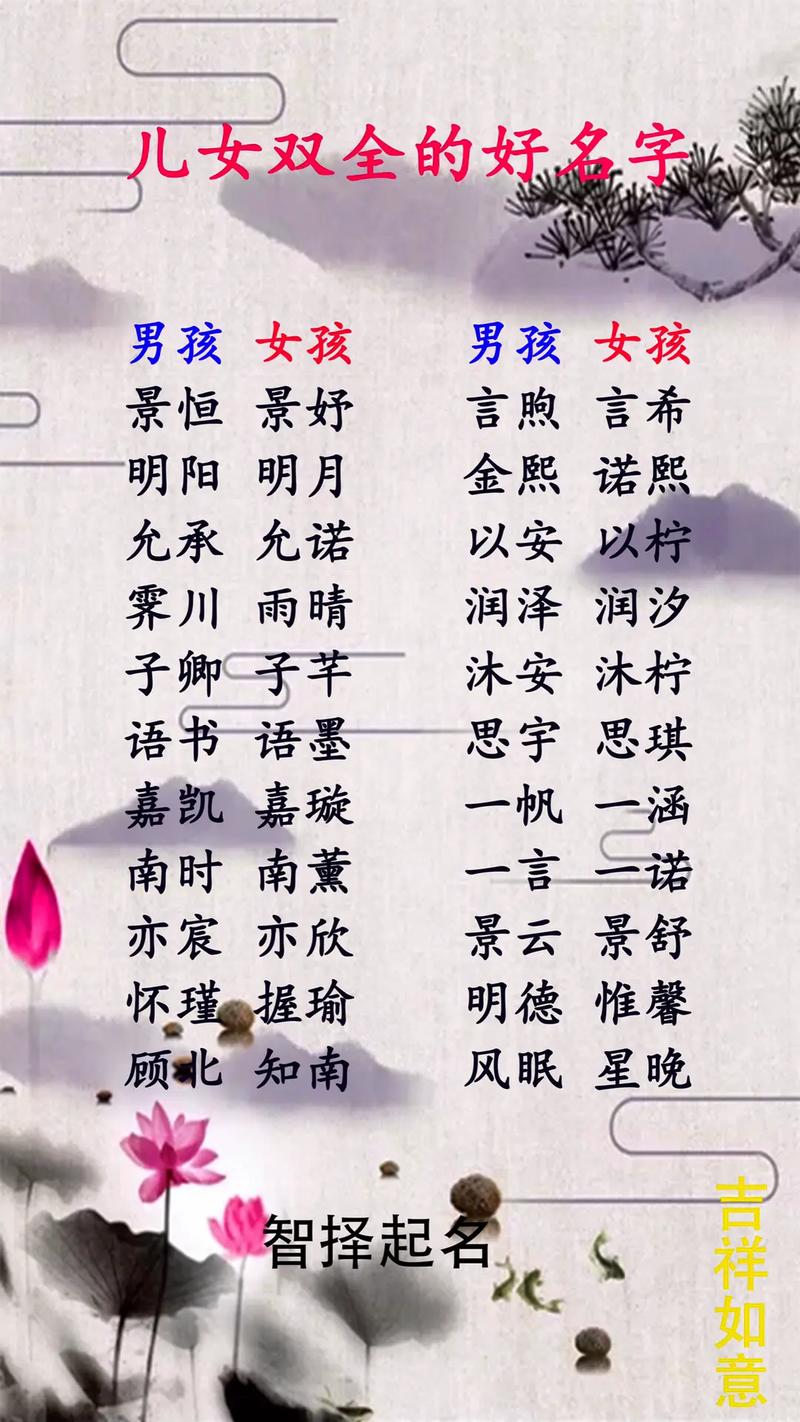 儿女双全的好名字
男孩 女孩 男孩 女孩
景恒 景妤 言煦 言希
明阳 明月 金熙 诺熙
允承 允诺 以安 以柠
霁川 雨晴 润泽 润汐
子卿 子芊 沐安 沐柠
语书 语墨 思宇 思琪
嘉凯 嘉璇 一帆 一涵
南时 南薰 一言 一诺
亦宸 亦欣 景云 景舒
怀瑾 握瑜 明德 惟馨
顾北 知南 风眠 星晚
智择起名
吉祥如意